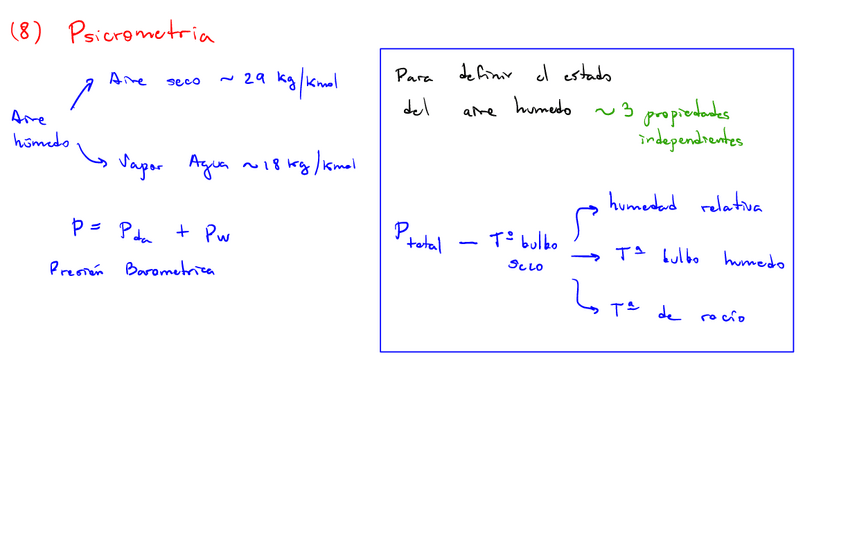 (8) Psicrometria
Aire seco ~ 29 kg/kmol
Aire
húmedo
Vapor Agua ~ 18 kg/kmol
P = Pda + Pw
Presión Barometrica
Para definir el estado
del aire humedo ~ 3 propiedades
independientes
humedad relativa
Ptotal – Tª bulbo
seco
Tª bulbo humedo
Tª de rocío